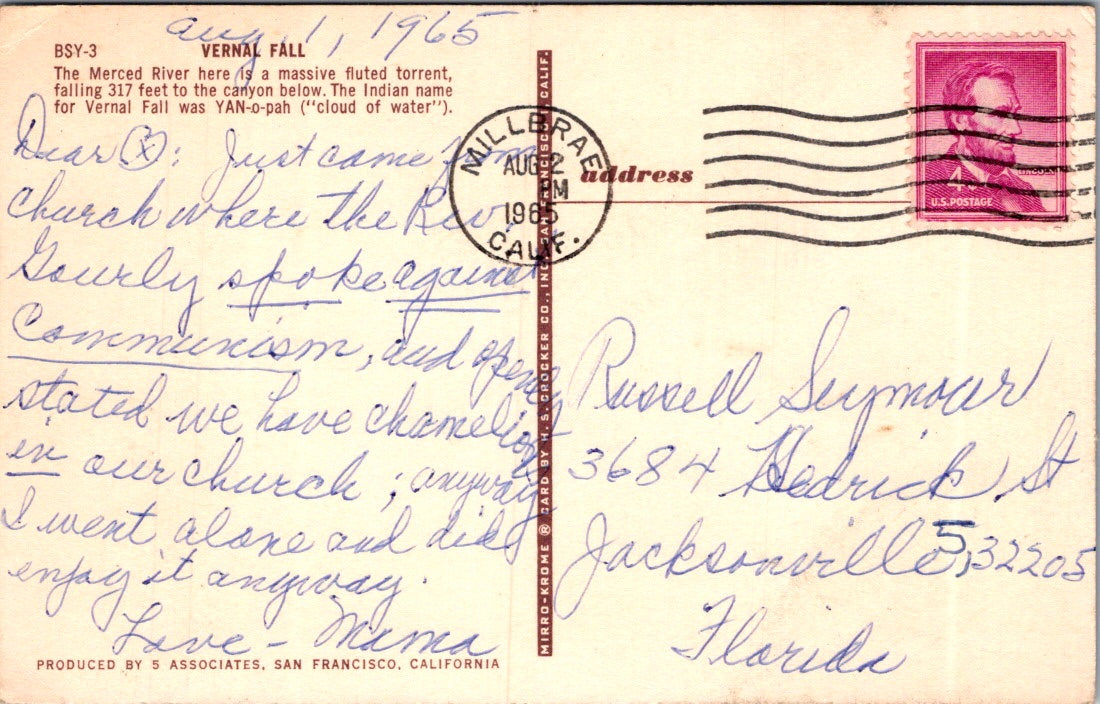 Aug, 1, 1965
BSY-3 VERNAL FALL
The Merced River here is a massive fluted torrent,
falling 317 feet to the canyon below. The Indian name
for Vernal Fall was YAN-o-pah ("cloud of water").
Dear (X): Just came from
church where the Rev.
Gourly spoke against
Communism, and openly
stated we have chamelions
in our church; anyway
I went alone and did
enjoy it anyway.
Love - Mama
PRODUCED BY 5 ASSOCIATES, SAN FRANCISCO, CALIFORNIA
MIRRO-KROME ® CARD BY H. S. CROCKER CO., INC., SAN FRANCISCO, CALIF.
MILLBRAE
AUG 2
PM
1965
CALIF.
address
4¢
LINCOLN
U.S. POSTAGE
Russell Seymour
3684 Hedrick St
Jacksonville 5, 32205
Florida